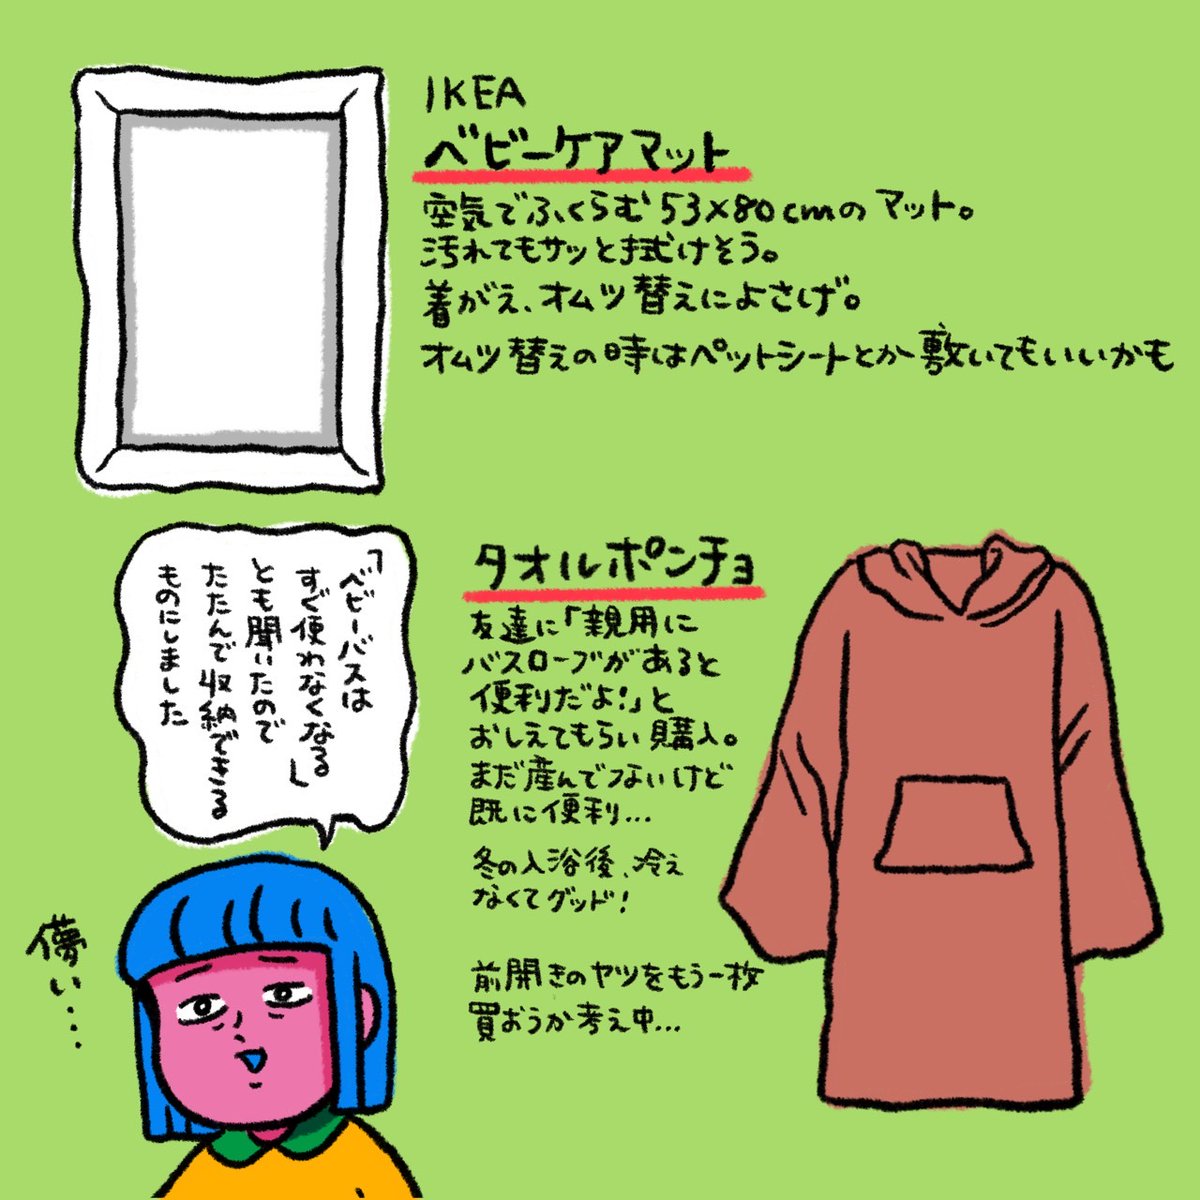 IKEA
ベビーケアマット
空気でふくらむ53×80cmのマット。
汚れてもサッと拭けそう。
着がえ、オムツ替えによさげ。
オムツ替えの時はペットシートとか敷いてもいいかも
「ベビーバスは
すぐ使わなくなる」
とも聞いたので
たたんで収納できる
ものにしました
儚い...
タオルポンチョ
友達に「親用に
バスローブがあると
便利だよ！」と
おしえてもらい購入。
まだ産んでないけど
既に便利...
冬の入浴後、冷え
なくてグッド！
前開きのヤツをもう一枚
買おうか考え中...